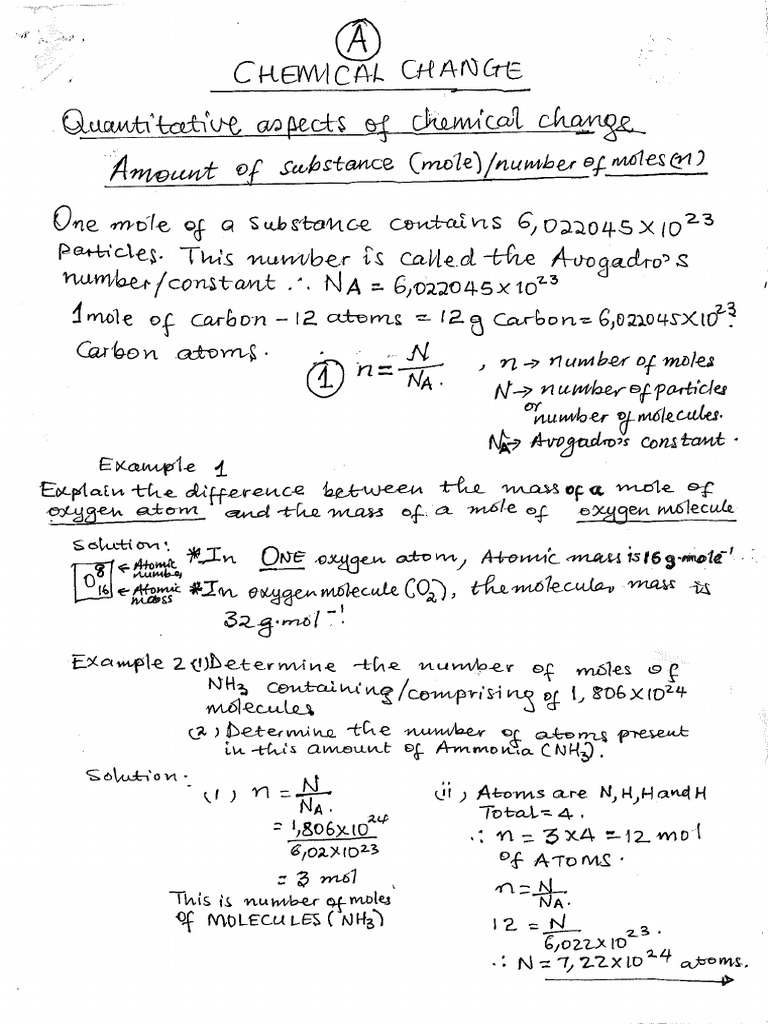 A
CHEMICAL CHANGE
Quantitative aspects of chemical change
Amount of substance (mole)/number of moles(n)
One mole of a substance contains 6,022045×10²³
particles. This number is called the Avogadro's
number/constant ∴ NA = 6,022045×10²³
1mole of carbon-12 atoms = 12g Carbon = 6,022045×10²³
Carbon atoms.
① n = N/NA. , n → number of moles
N → number of particles
or number of molecules.
NA → Avogadro's constant.
Example 1
Explain the difference between the mass of a mole of
oxygen atom and the mass of a mole of oxygen molecule
Solution: * In ONE oxygen atom, Atomic mass is 16 g.mole⁻¹
O 8 ← Atomic number
16 ← Atomic mass
* In oxygen molecule (O₂), the molecular mass is
32g.mol⁻¹
Example 2 (1) Determine the number of moles of
NH₃ containing/comprising of 1,806×10²⁴
molecules
(2) Determine the number of atoms present
in this amount of Ammonia (NH₃).
Solution:
(i) n = N/NA.
= 1,806×10²⁴/6,02×10²³
= 3 mol
This is number of moles
of MOLECULES (NH₃)
(ii) Atoms are N, H, H and H
Total = 4.
∴ n = 3×4 = 12 mol
of ATOMS.
n = N/NA.
12 = N/6,022×10²³.
∴ N = 7,22×10²⁴ atoms.